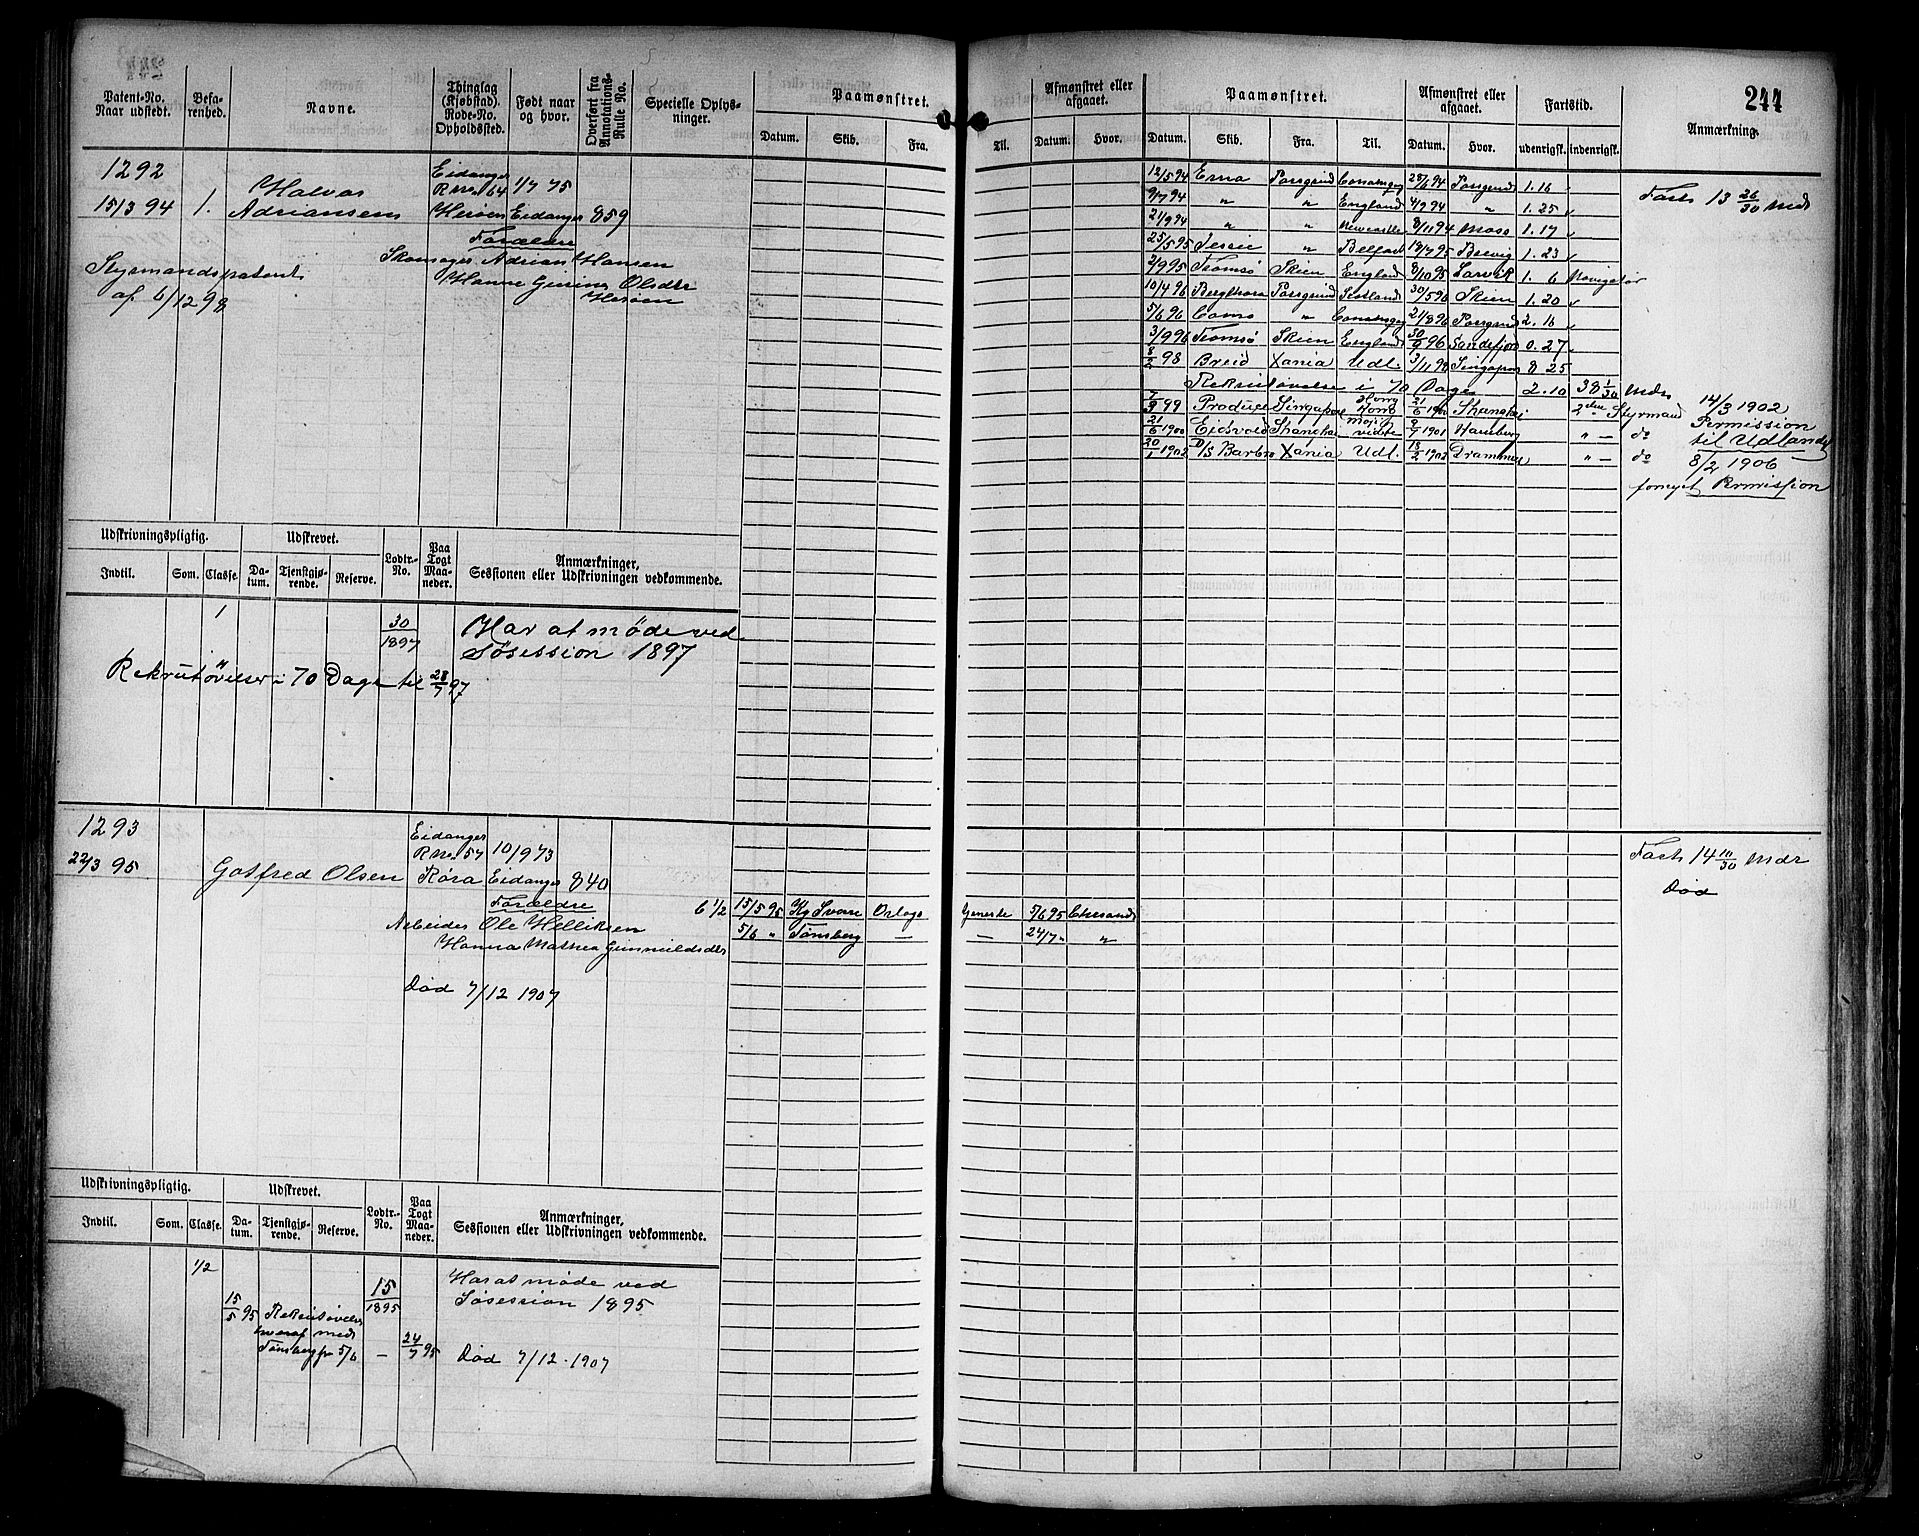 244
Patent-No.
Naar udstedt.
Befa-
renhed.
Navne.
Thinglag
(Kjøbstad).
Rode-No.
Opholdssted.
Født naar
og hvor.
Overført fra
Annotations-
Rulle No.
Specielle Oplys-
ninger.
Paamønstret.
Datum. Skib. Fra. Til.
Afmønstret eller
afgaaet.
Datum. Hvor.
Paamønstret.
Datum. Skib. Fra. Til.
Afmønstret eller
afgaaet.
Datum. Hvor.
Fartstid.
udenrigsk. indenrigsk.
Anmærkning.
1292
15/3 94
1.
Halvor
Adriansen
Eidanger
R no 64
Herøen
1/7 75
Eidanger
859
Forældre
Skomager Adrian Hansen
Hanne Olsdtr
Herøen
Styrmandspatent
af 6/12 98
12/5 94 Erna Porsgrund 28/6 94 Porsgrund 1. 16
9/7 94 " " England 4/9 94 " 1. 25
21/9 94 " " Newcastle 8/11 94 Moss 1. 17
25/5 95 Jessie " Belfast 18/7 95 Brevig 1. 23
2/9 95 Tromsø Skien England 8/10 95 Larvik 1. 6 Navigatør
10/4 96 Bergthora Porsgrund 30/5 96 Skien 1. 20
5/6 96 Como " 21/8 96 Porsgrund 2. 16
3/9 96 Tromsø Skien England 30/9 96 Sandefjord 0. 27
8/2 98 Breid Xania Udl. 3/11 98 Singapore 8 25
Rekrutøvelse i 70 Dage 2. 10 38 1/30 Mdr
7/3 99 Produce Singapore Hong Kong 21/6 1900 Shanghai 2den Styrmand
21/6 1900 Eidsvold Shanghai 2/7 1901 Hamburg " — do
20/1 1902 D/S Barbro Xania Udl. 18/2 1902 Drammen " — do
Farts 13 26/30 Mdr
14/3 1902
Permission
til Udlandet
8/2 1906
fornyet Permission
Udskrivningspligtig.
Indtil. Som. Classe.
Udskrevet.
Da-
tum.
Tjenstgjø-
rende.
Reserve.
Lodtr.-
No.
Paa
Togt
Maa-
neder.
Anmærkninger,
Sessionen eller Udskrivningen vedkommende.
1
30/1897
Har at møde ved
Søsession 1897
Rekrutøvelse i 70 Dage til 28/7 97
1293
22/3 95
Gotfred Olsen
Eidanger
R no 57
Røra
10/9 73
Eidanger
840
Forældre
Arbeider Ole Helliksen
Hanna Mathea Gunnuldsdtr
Død 7/12 1907
6 1/2
15/5 95 Kg Sverre Orlogs Geneste 5/6 95
5/6 " Tønsberg — — 24/7 " "
Farts 14 10/30 Mdr
Død
Udskrivningspligtig.
Indtil. Som. Classe.
Udskrevet.
Da-
tum.
Tjenstgjø-
rende.
Reserve.
Lodtr.-
No.
Paa
Togt
Maa-
neder.
Anmærkninger,
Sessionen eller Udskrivningen vedkommende.
1/2
15/5 95
Rekrutøvelse
hveraf med
Tønsberg fra 5/6 —
15/1895
24/7 95
Har at møde ved
Søsession 1895
Død 7/12.1907